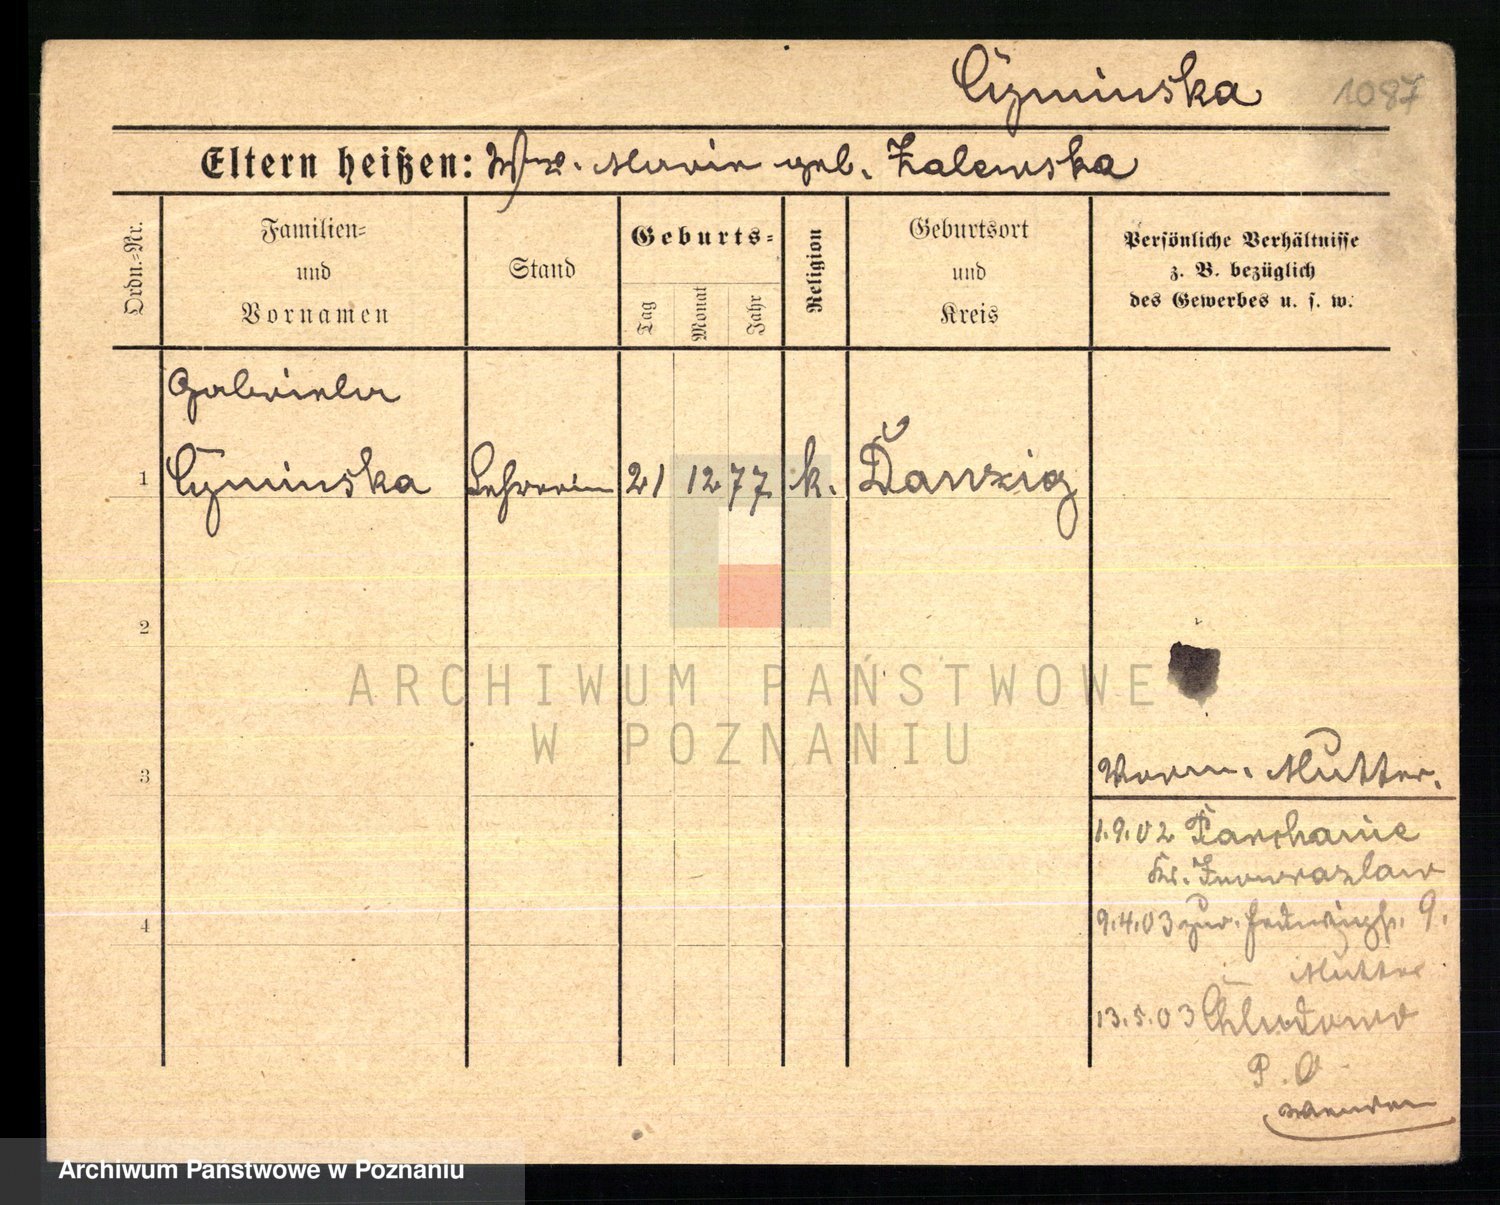 Cyminska 1087
Eltern heißen: Ww. Marie geb. Zalewska
Ordn.-Nr.
Familien-
und
Vornamen
Stand
Geburts-
Tag
Monat
Jahr
Religion
Geburtsort
und
Kreis
Persönliche Verhältnisse
z. B. bezüglich
des Gewerbes u. s. w.
Gabriela
1 Cyminska Lehrerin 21 12 77 k. Danzig
2
3
4
Worm. Mutter.
1.9.02 Parchanie
Kr. Inowrazlaw
9.4.03 zur. Hedwigstr. 9.
Mutter
13.5.03 Chludowo
P. O.
wenden
ARCHIWUM PAŃSTWOWE
W POZNANIU
Archiwum Państwowe w Poznaniu